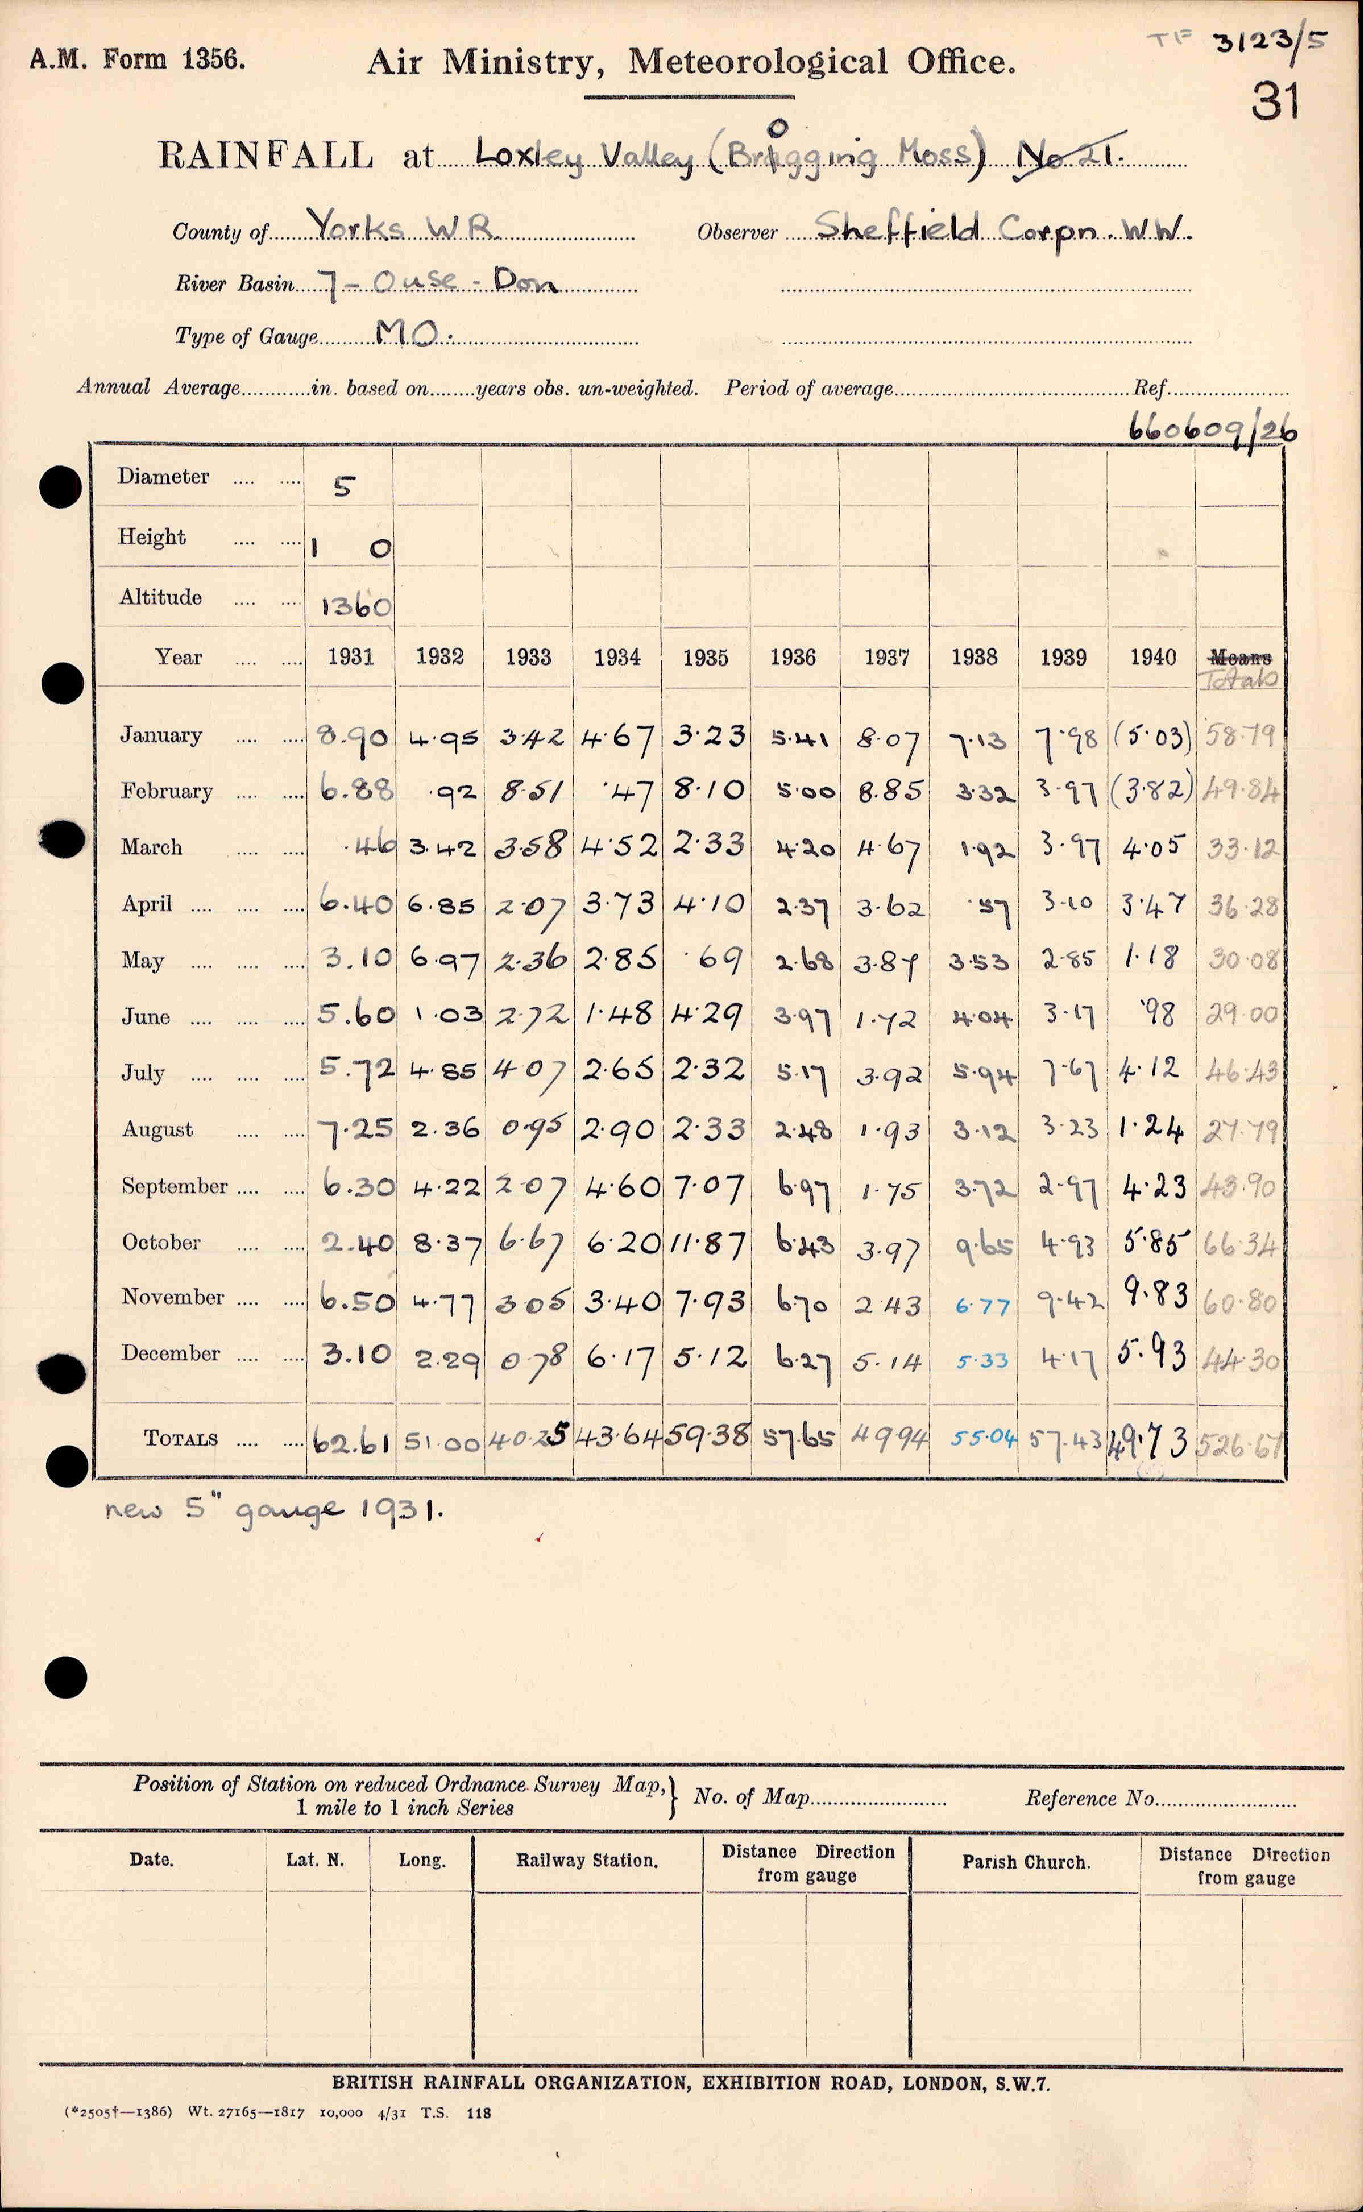 TF 3123/5
A.M. Form 1356. Air Ministry, Meteorological Office.
31
RAINFALL at Loxley Valley (Brogging Moss) No 21.
County of Yorks W R. Observer Sheffield Corpn. W W.
River Basin 7 - Ouse - Don
Type of Gauge MO.
Annual Average in. based on years obs. un-weighted. Period of average Ref.
660609/26
Diameter 5
Height 1 0
Altitude 1360
Year 1931 1932 1933 1934 1935 1936 1937 1938 1939 1940 Means
Totals
January 8.90 4.95 3.42 4.67 3.23 5.41 8.07 7.13 7.98 (5.03) 58.79
February 6.88 .92 8.51 .47 8.10 5.00 8.85 3.32 3.97 (3.82) 49.84
March .46 3.42 3.58 4.52 2.33 4.20 4.67 1.92 3.97 4.05 33.12
April 6.40 6.85 2.07 3.73 4.10 2.37 3.62 .57 3.10 3.47 36.28
May 3.10 6.97 2.36 2.85 .69 2.68 3.87 3.53 2.85 1.18 30.08
June 5.60 1.03 2.72 1.48 4.29 3.97 1.72 4.04 3.17 .98 29.00
July 5.72 4.85 4.07 2.65 2.32 5.17 3.92 5.94 7.67 4.12 46.43
August 7.25 2.36 0.95 2.90 2.33 2.48 1.93 3.12 3.23 1.24 27.79
September 6.30 4.22 2.07 4.60 7.07 6.97 1.75 3.72 2.97 4.23 43.90
October 2.40 8.37 6.67 6.20 11.87 6.43 3.97 9.65 4.93 5.85 66.34
November 6.50 4.77 3.05 3.40 7.93 6.70 2.43 6.77 9.42 9.83 60.80
December 3.10 2.29 0.78 6.17 5.12 6.27 5.14 5.33 4.17 5.93 44.30
TOTALS 62.61 51.00 40.25 43.64 59.38 57.65 49.94 55.04 57.43 49.73 526.67
new 5" gauge 1931.
Position of Station on reduced Ordnance Survey Map, } No. of Map Reference No.
1 mile to 1 inch Series
Date. Lat. N. Long. Railway Station. Distance Direction from gauge Parish Church. Distance Direction from gauge
BRITISH RAINFALL ORGANIZATION, EXHIBITION ROAD, LONDON, S.W.7.
(*2505†—1386) Wt. 27165—1817 10,000 4/31 T.S. 118